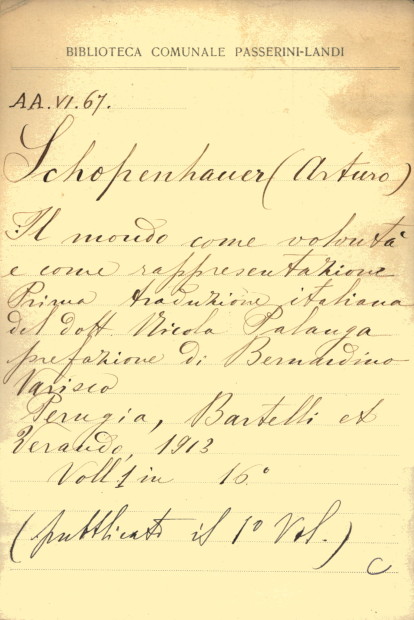 BIBLIOTECA COMUNALE PASSERINI-LANDI
AA.VI.67.
Schopenhauer (Arturo)
Il mondo come volontà
e come rappresentazione
Prima traduzione italiana
del dott Nicola Palanga
prefazione di Bernardino
Varisco
Perugia, Bartelli et
Verando, 1913
Voll 1 in 16°
(pubblicato il 1° Vol.)
C